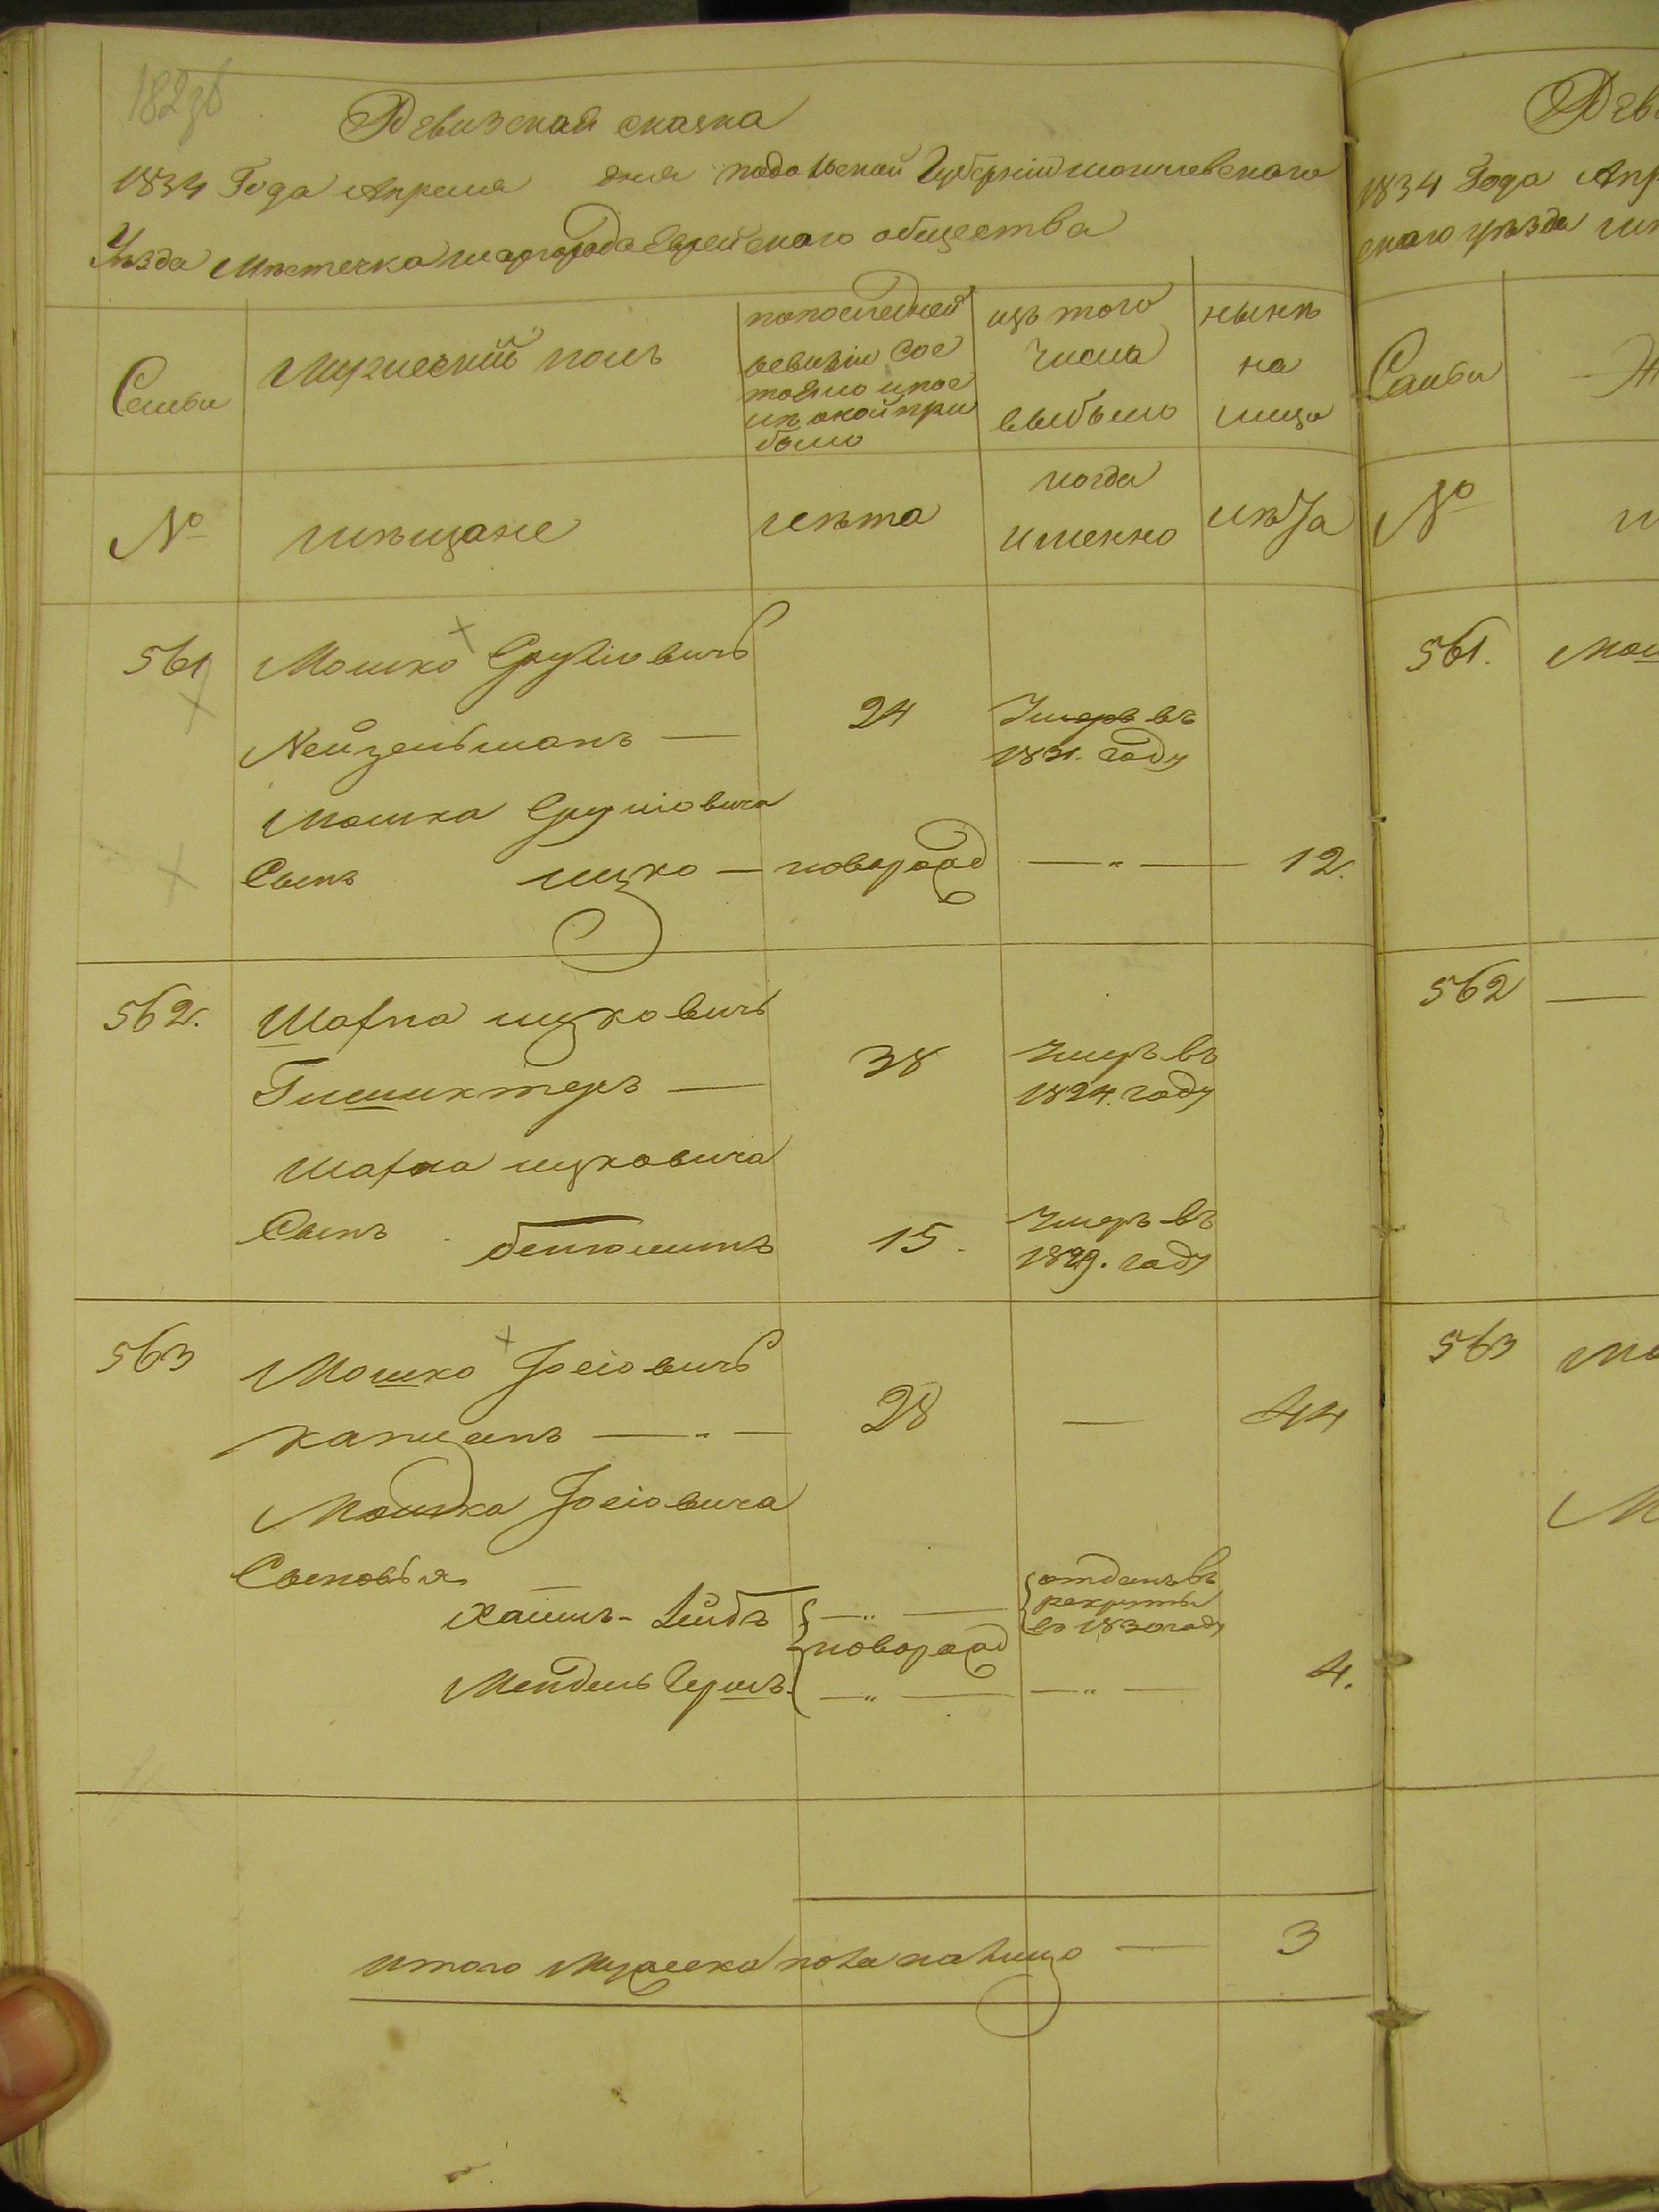 182 об
Ревизская сказка
1834 Года Апреля дня подольской Губернiи могилевского
Уѣзда Мѣстечка шаргорода Еврейского общества
Семьи
Мужеский полъ
попоследней
ревизiи Сос
тояло ипос
лѣ оной при
было
изъ того
числа
выбыло
нынѣ
на
лицо
№
мѣщане
лѣта
когда
именно
лѣта
561
Мошко Сруліовичъ
Нейзельманъ —
24
Умеръ въ
1831. году
Мошка Сруліовича
Сынъ ицко — новорожд — " — 12.
562.
Шафпа ицковичъ
38
Умеръ въ
1824. году
шафпа ицковича
Сынъ бенюминъ
15.
Умеръ въ
1829. году
563
Мошко Іосіовичъ
капцанъ — " —
28 — 44
Мошка Іосіовича
Сыновья
Хаимъ-Лейбъ — " —
отданъ въ
рекруты
въ 1830 году
новорожд
Мендель Гершъ — " — — " — 4.
итого Мужеска пола налицо — 3
Рев
1834 Года Апр
ского уѣзда
Семьи
Ж
№
561. Мош
562 —
563 Мо
М